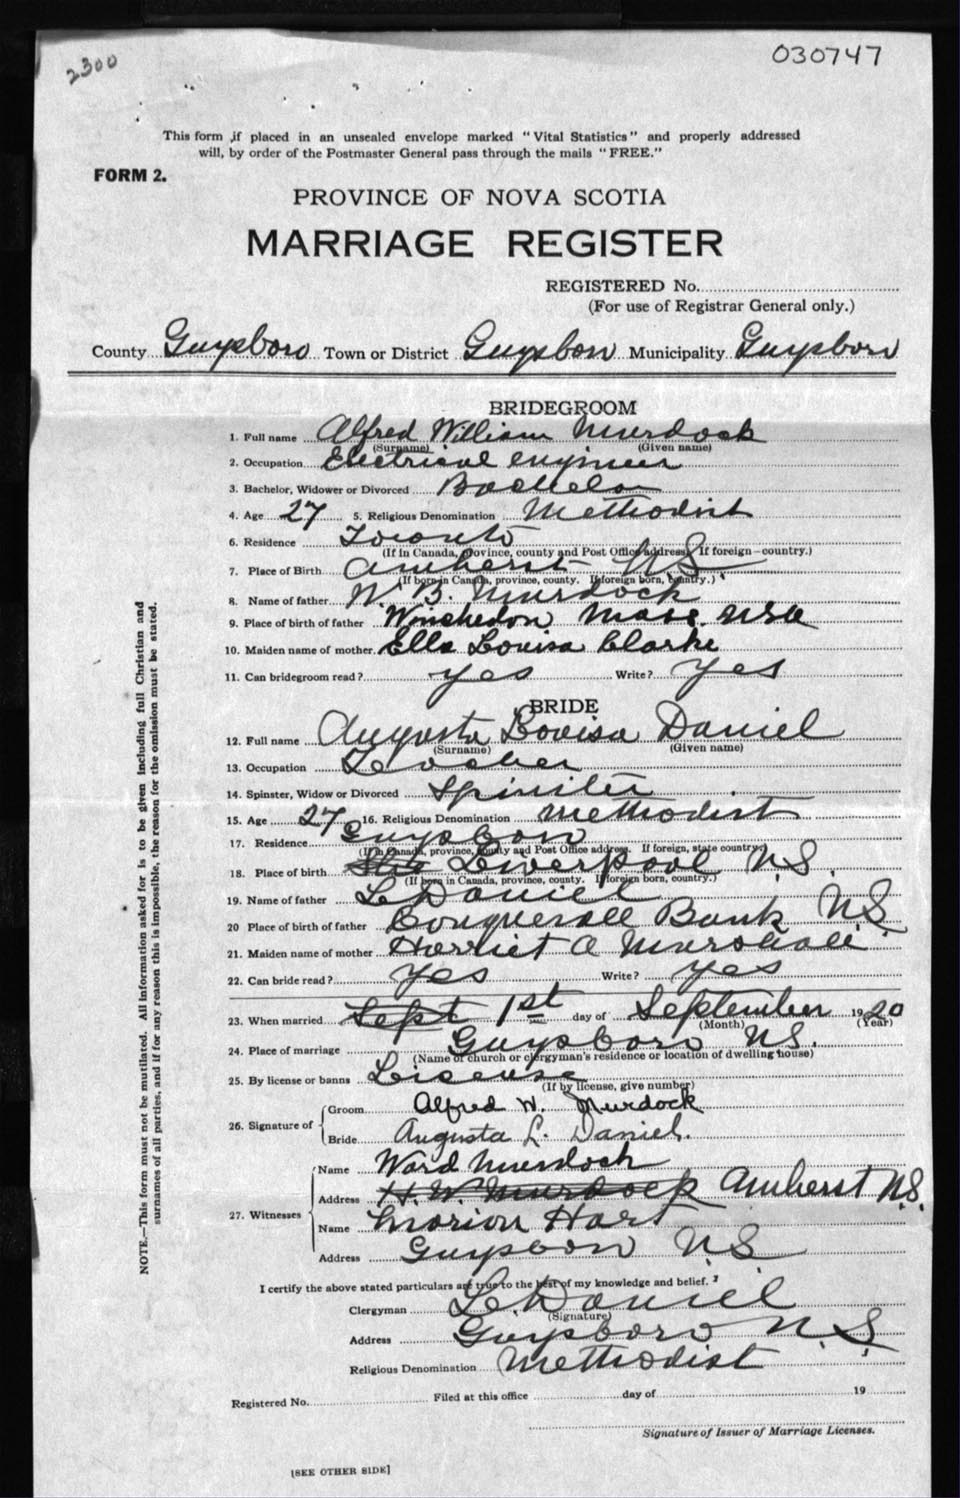 2300
030747
This form if placed in an unsealed envelope marked "Vital Statistics" and properly addressed
will, by order of the Postmaster General pass through the mails "FREE."
FORM 2.
PROVINCE OF NOVA SCOTIA
MARRIAGE REGISTER
REGISTERED No.
(For use of Registrar General only.)
County Guysboro Town or District Guysboro Municipality Guysboro
BRIDEGROOM
1. Full name Alfred William Murdock
(Surname) (Given name)
2. Occupation Electrical engineer
3. Bachelor, Widower or Divorced Bachelor
4. Age 27 5. Religious Denomination Methodist
6. Residence Toronto
(If in Canada, province, county and Post Office address. If foreign—country.)
7. Place of Birth Amherst N.S
(If born in Canada, province, county. If foreign born, country.)
8. Name of father W. B. Murdock
9. Place of birth of father Winchedon Mass. USA
10. Maiden name of mother Ella Louisa Clarke
11. Can bridegroom read? yes Write? yes
BRIDE
12. Full name Augusta Louisa Daniel
(Surname) (Given name)
13. Occupation Teacher
14. Spinster, Widow or Divorced Spinster
15. Age 27 16. Religious Denomination Methodist
17. Residence Guysboro
(If in Canada, province, county and Post Office address. If foreign, state country.)
18. Place of birth Liverpool N.S.
(If born in Canada, province, county. If foreign born, country.)
19. Name of father L Daniel
20 Place of birth of father Conquerall Bank N.S.
21. Maiden name of mother Harriet A Marshall
22. Can bride read? yes Write? yes
23. When married Sept 1st day of September 1920
(Month) (Year)
24. Place of marriage Guysboro N.S.
(Name of church or clergyman's residence or location of dwelling house)
25. By license or banns License
(If by license, give number)
26. Signature of Groom Alfred W. Murdock
Bride Augusta L. Daniel.
27. Witnesses Name Ward Murdock
Address H. W. Murdock Amherst N.S.
Name Marion Hart
Address Guysboro N.S
I certify the above stated particulars are true to the best of my knowledge and belief.
Clergyman L Daniel
(Signature)
Address Guysboro N.S.
Religious Denomination Methodist
Registered No. Filed at this office day of 19
Signature of Issuer of Marriage Licenses.
[SEE OTHER SIDE]
NOTE.—This form must not be mutilated. All information asked for is to be given including full Christian and
surnames of all parties, and if for any reason this is impossible, the reason for the omission must be stated.